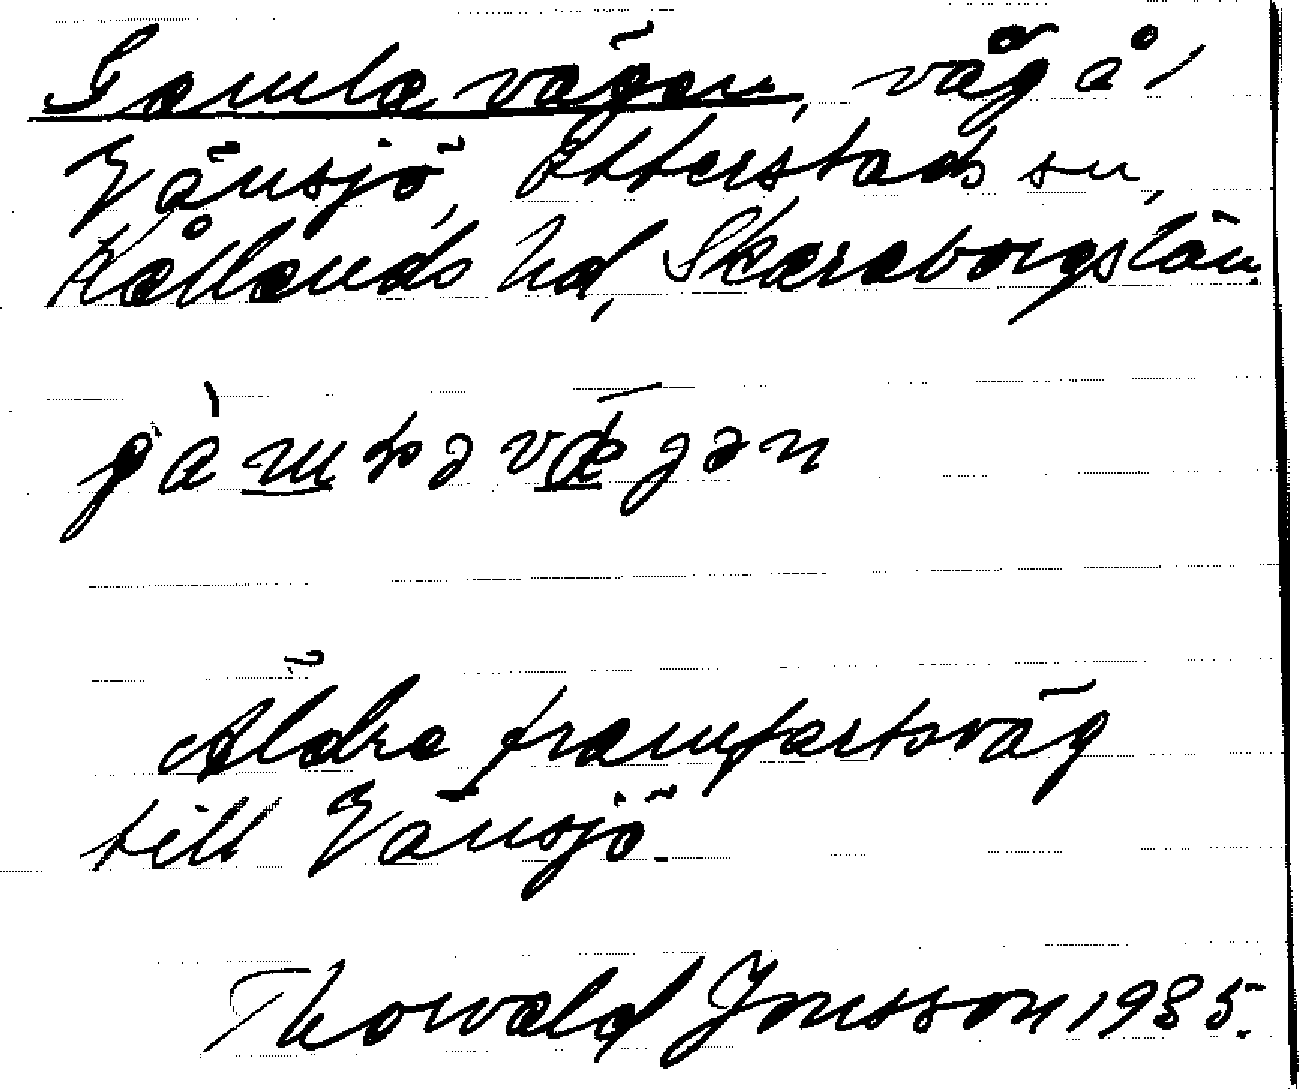 Gamla vägen, väg å 1
Vänsjö, Otterstads sn,
Kållands hd, Skaraborgs län.
Äldre framfartsväg
till Vänsjö.
Thorvald Jonsson 1935.